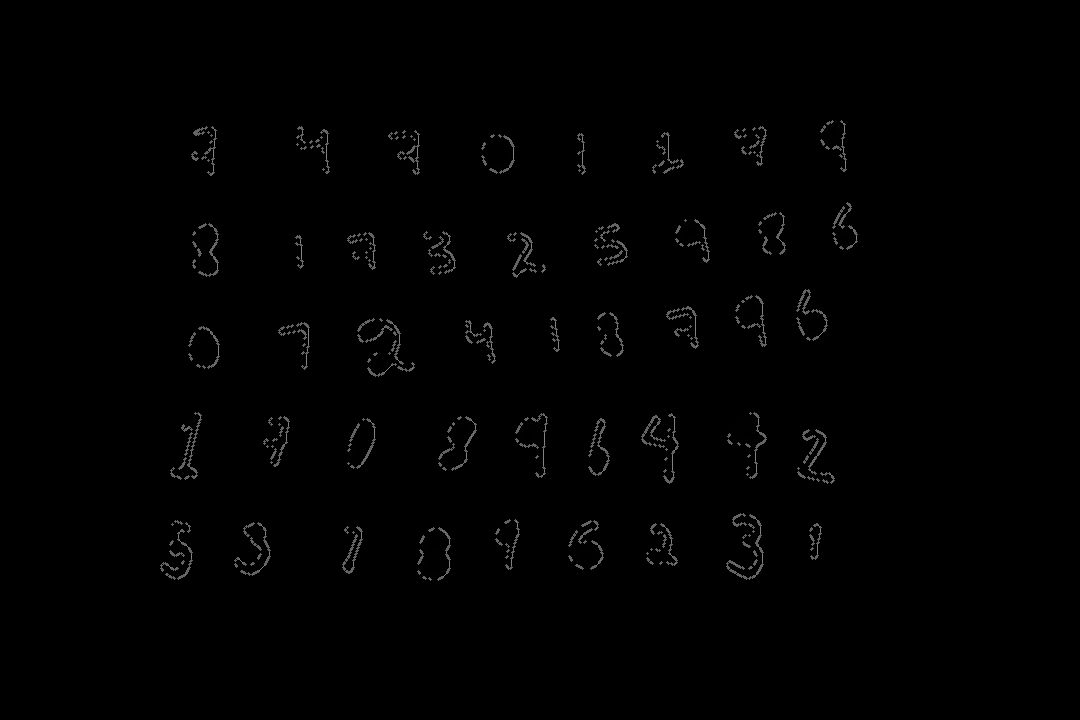 7 4 7 0 1 1 7 9
8 1 7 3 2 5 9 8 6
0 7 2 4 1 8 7 9 6
1 7 0 8 9 6 4 4 2
5 1 8 9 6 2 3 1